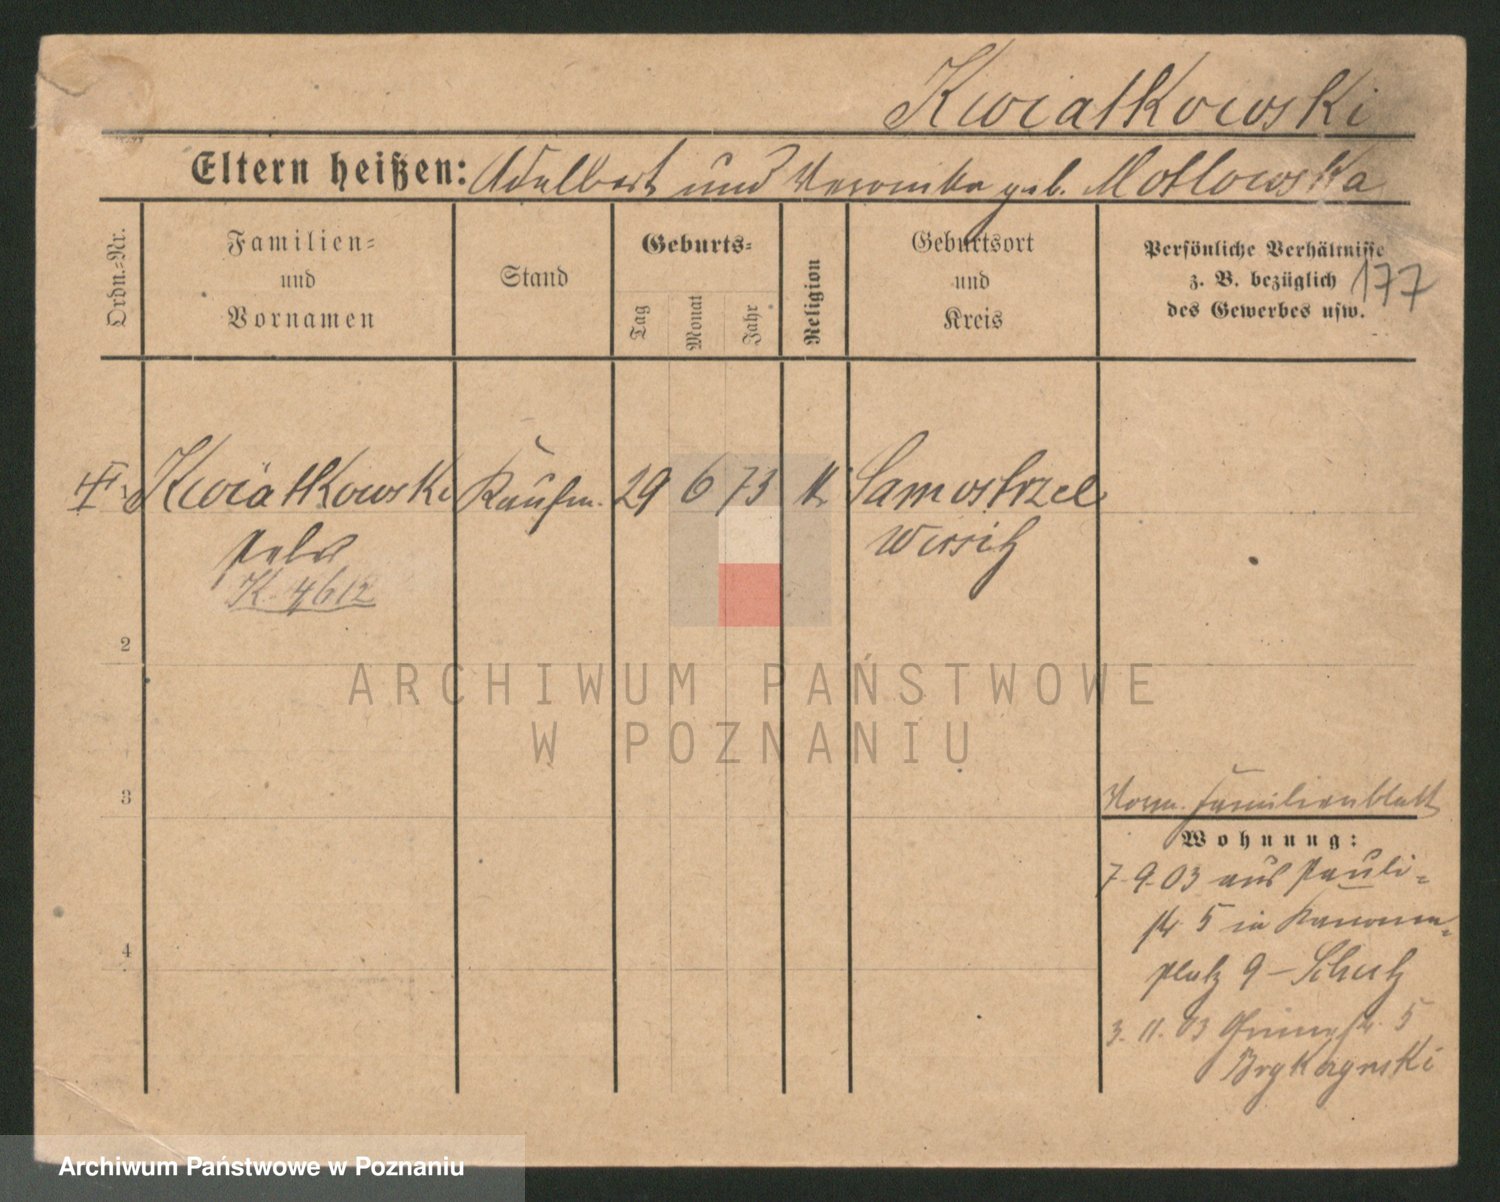 Kwiatkowski
Eltern heißen: Adalbert und Veronika geb. Motlowska
Ordn.-Nr.
Familien-
und
Vornamen
Stand
Geburts-
Tag
Monat
Jahr
Religion
Geburtsort
und
Kreis
Persönliche Verhältnisse
z. B. bezüglich
des Gewerbes usw.
177
1 Kwiatkowski Kaufm. 29 6 73 k. Samostrzel
Peter Wirsitz
K. 4612
2
ARCHIWUM PAŃSTWOWE
W POZNANIU
3
Familienblatt
Wohnung:
7.9.03 aus Pauli-
str 5 in Kanonen-
platz 9 – Schulz
4
3. 11. 03 5
Archiwum Państwowe w Poznaniu